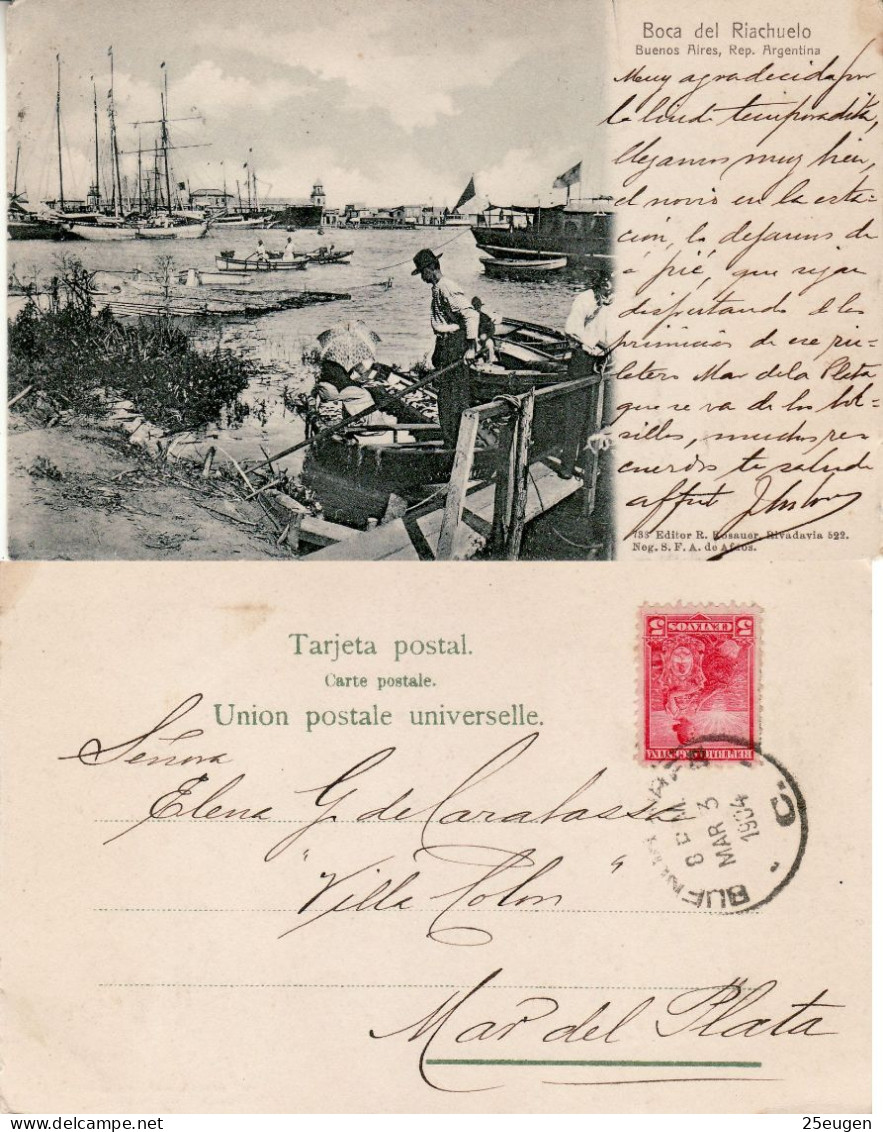 Boca del Riachuelo
Buenos Aires, Rep. Argentina
Muy agradecida por
la linda temporadita,
llegamos muy bien,
el novio en la esta-
ción, lo dejamos de
á pié, que sigan
disfrutando de las
primicias de ese
Mar de la Plata
que se va de los
muchos re-
cuerdos te saluda
733 Editor R. Rosauer, Rivadavia 522.
Neg. S. F. A. de Afdos.
Tarjeta postal.
Carte postale.
Union postale universelle.
5 CENTAVOS 5
REPUBLICA ARGENTINA
BUENOS AIRES
8 P.M.
MAR 3
1904
C.
Señora
Elena G. de Carabassa
"Villa Colon"
Mar del Plata
25eugen